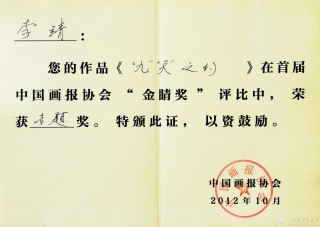 李靖：
您的作品《“九”“天”之约》在首届
中国画报协会“金睛奖”评比中，荣
获专题奖。特颁此证，以资鼓励。
中国画报协会
2012年10月